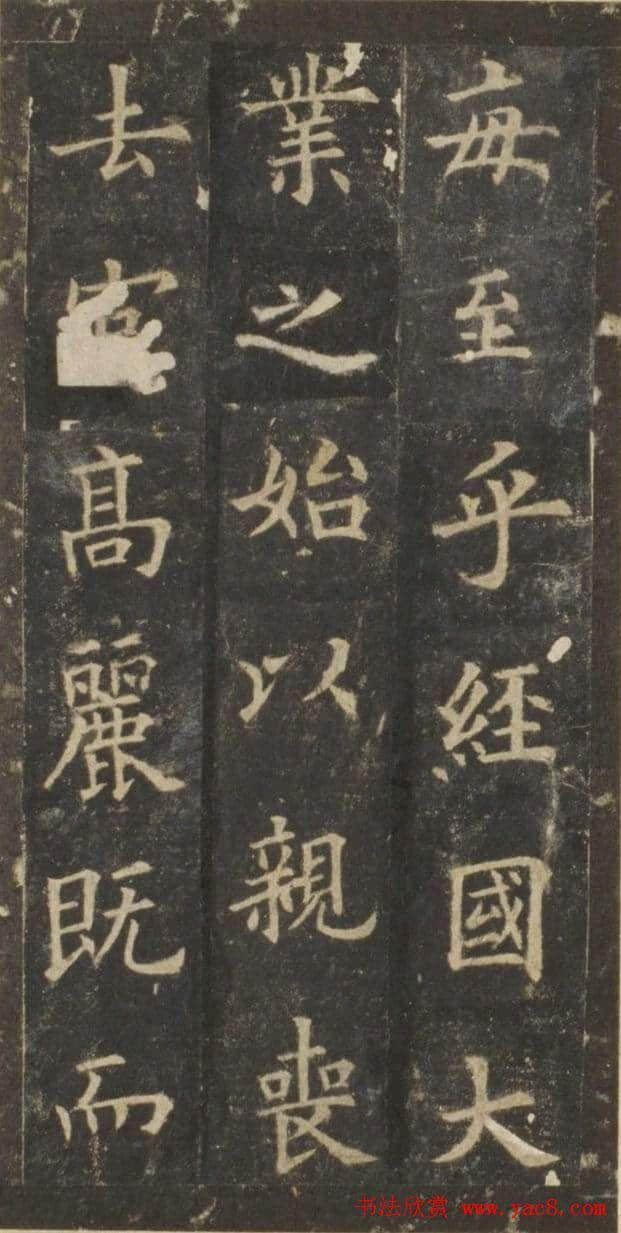 每至乎經國大
業之始以親喪
去高麗既而
书法欣赏 www.yac8.com